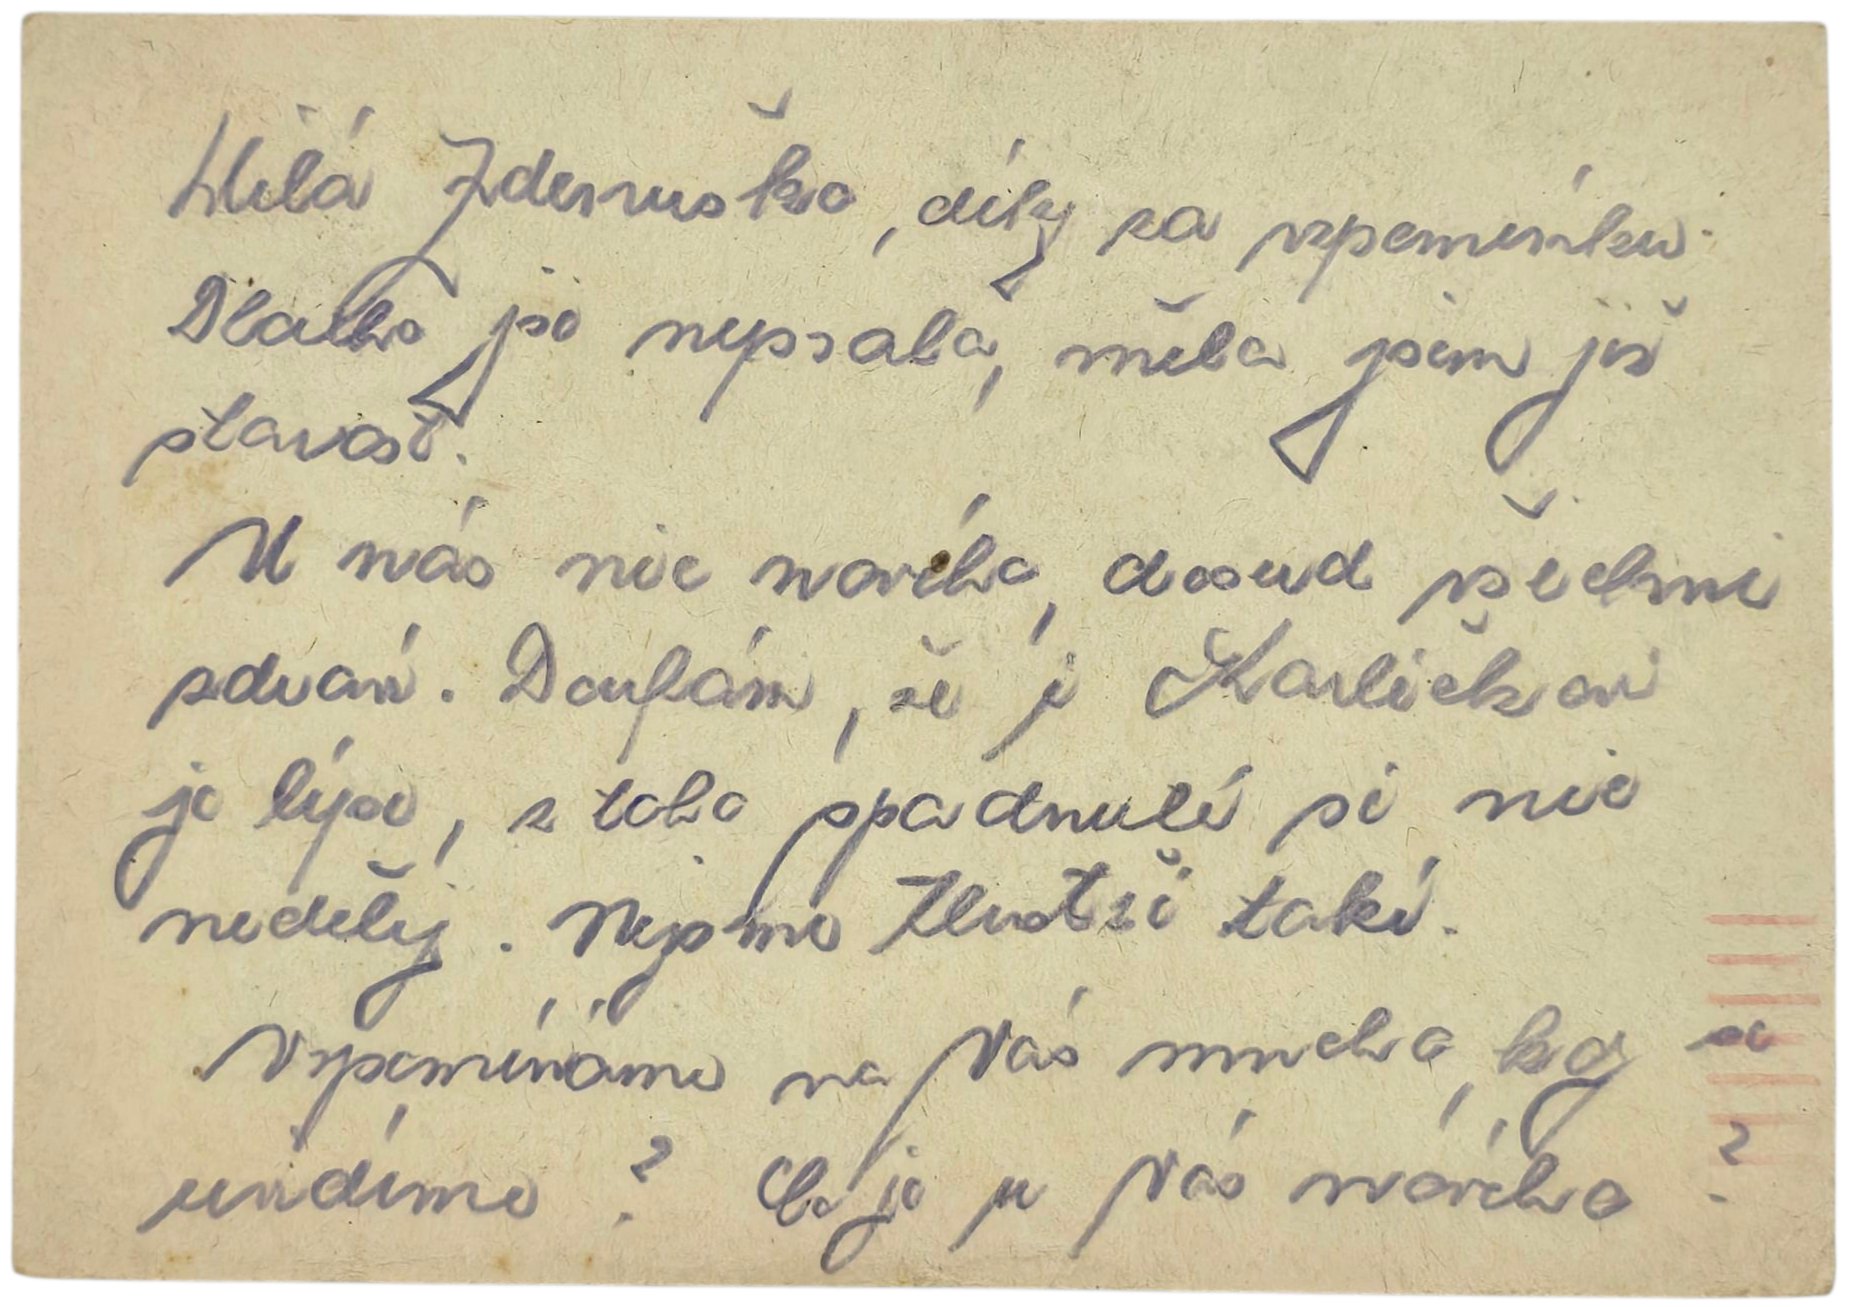 Milá Zdenuško, díky za vzpomínku.
Dlouho jsi nepsala, měla jsem již
starost.
U nás nic nového, dosud všichni
zdrávi. Doufám, že i Karlíčkovi
je lépe, z toho spadnutí si nic
nedělej. Nejsme tlustší také.
Vzpomínáme na Vás mnoho, kdy se
uvidíme? Co je u Vás nového?